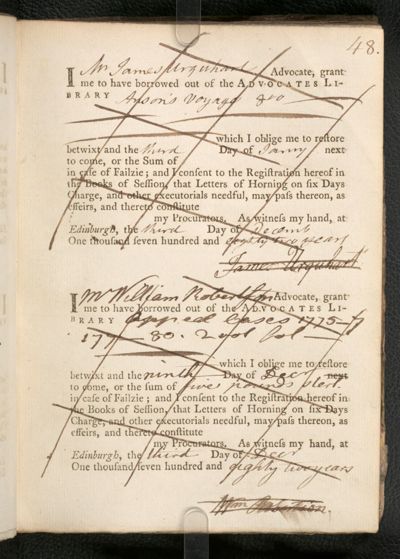 48.
I Mr James Urquhart Advocate, grant
me to have borrowed out of the ADVOCATES LI-
BRARY Anson's Voyage 8vo
which I oblige me to reſtore
betwixt and the third Day of Janry next
to come, or the Sum of
in caſe of Failzie; and I conſent to the Regiſtration hereof in
the Books of Seſſion, that Letters of Horning on ſix Days
Charge, and other executorials needful, may paſs thereon, as
effeirs, and thereto conſtitute
my Procurators. As witneſs my hand, at
Edinburgh, the third Day of Decemb
One thouſand ſeven hundred and eighty two years
James Urquhart
I Mr William Robertson Advocate, grant
me to have borrowed out of the ADVOCATES LI-
BRARY Appeal Cases 1775
80. 2 vol fol
which I oblige me to reſtore
betwixt and the ninth Day of Decr next
to come, or the ſum of five pounds sterl
in caſe of Failzie; and I conſent to the Regiſtration hereof in
the Books of Seſſion, that Letters of Horning on ſix Days
Charge, and other executorials needful, may paſs thereon, as
effeirs, and thereto conſtitute
my Procurators. As witneſs my hand, at
Edinburgh, the third Day of Decr
One thouſand ſeven hundred and eighty two years
Wm Robertson.